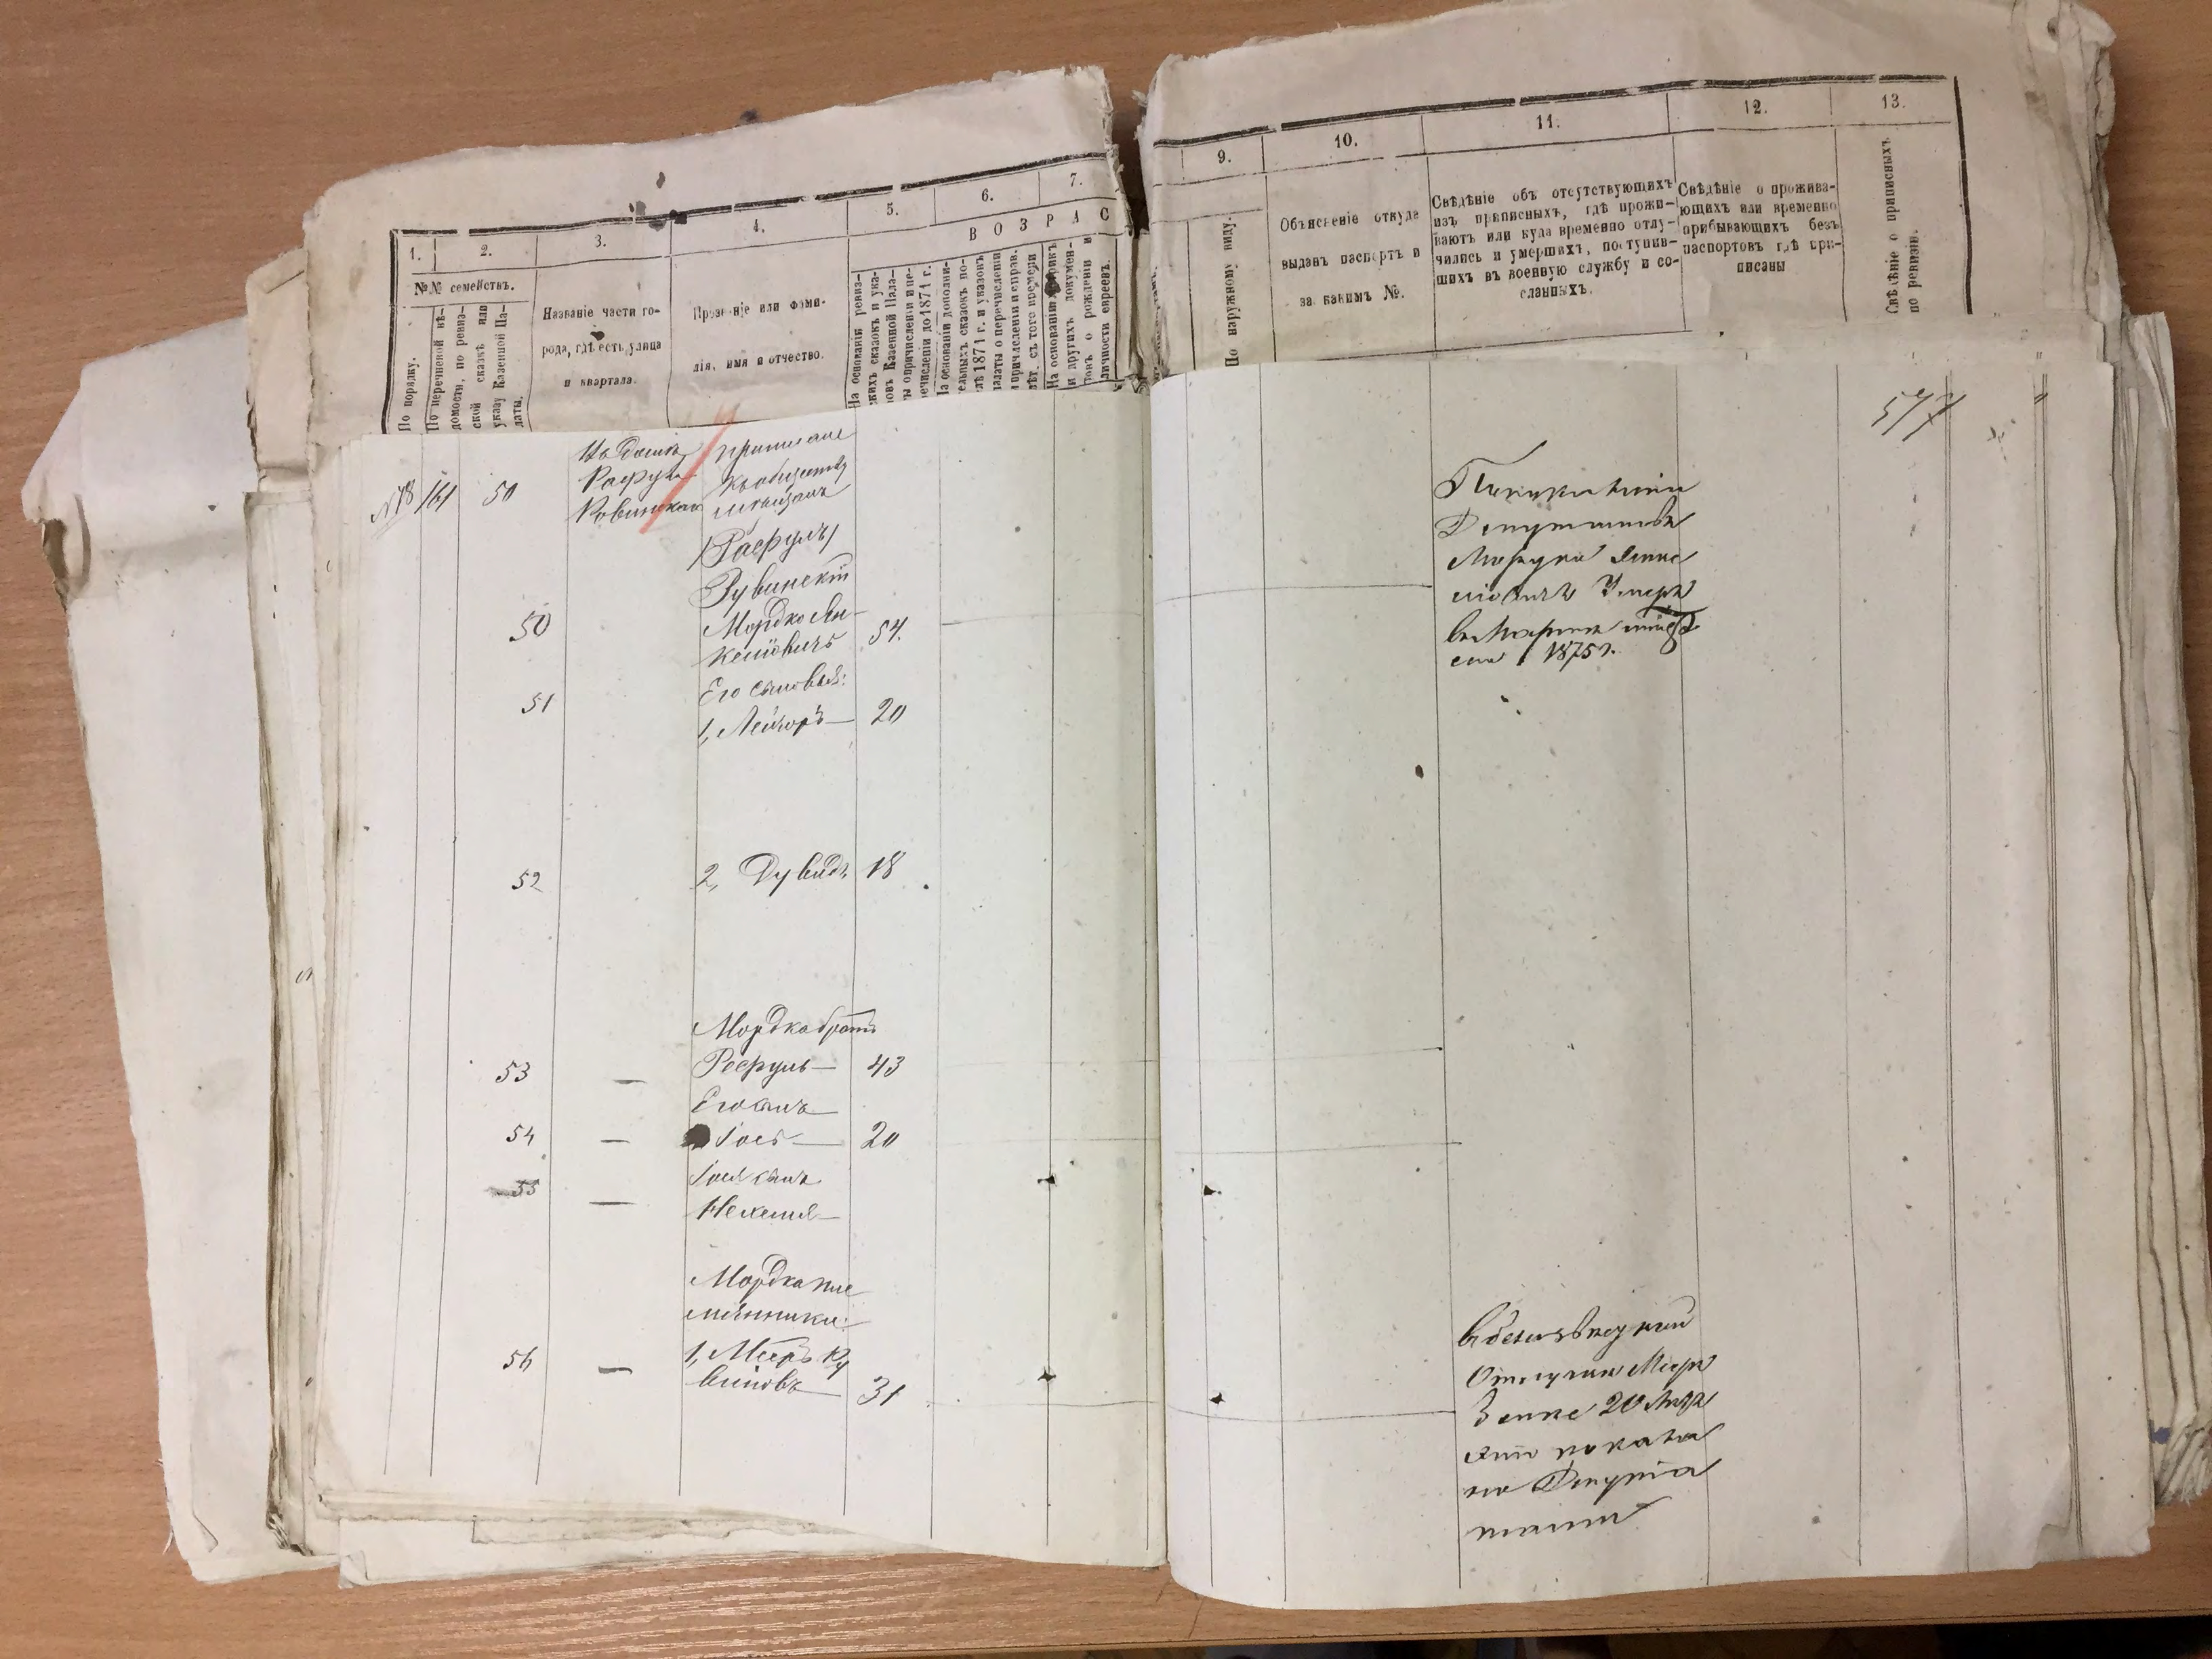 1.
2.
3.
4.
5.
6.
7.
В О З Р А С
№№ семействъ.
По порядку.
По перечневой вѣ-
домости, по ревиз-
ской сказкѣ или
указу Казенной Па-
латы.
Названіе части го-
рода, гдѣ есть, улица
и квартала.
Прозваніе или фами-
лія, имя и отчество.
На основаніи ревиз-
скихъ сказокъ и ука-
зовъ Казенной Пала-
ты о причисленіи и пе-
речисленіи до 1871 г.
На основаніи дополни-
тельныхъ сказокъ по-
слѣ 1871 г. и указовъ
палаты о перечисленіи
и причисленіи и справ.
лѣт. съ того времени
На основаніи метрикъ
и других документ-
товъ о рожденіи и
личности евреевъ.
9.
10.
11.
12.
13.
По наружному виду.
Объясненіе откуда
выданъ паспортъ и
за какимъ №.
Свѣдѣніе объ отсутствующихъ
изъ приписныхъ, гдѣ прожи-
ваютъ или куда временно отлу-
чились и умершихъ, поступив-
шихъ въ военную службу и со-
сланныхъ.
Свѣдѣніе о прожива-
ющихъ или временно
прибывающихъ безъ
паспортовъ гдѣ при-
писаны
Свѣдѣніе о приписныхъ
по ревизіи.
577
№78 161 50
приписан
къ обществу
мѣщанъ
/Расфуль/
Рувинскій
50 Мордко Ян-
келіовичъ 54.
51 Его сыновья:
1, Лейзоръ 20
52 2, Дувидъ 18
Мордка братъ
53 — Рефуль 43
Его сынъ
54 — Іось 20
55 — Іося сынъ
Нехемия
Мордка пле
мянники:
56 — 1, Мееръ Ру
виновъ 31
Депутатовъ
Мордко Янке
ліовичъ Умеръ
въ Мартѣ мѣся
1875 г.
Отлучки Меера
20 лѣтъ
показа
но Депута
тами